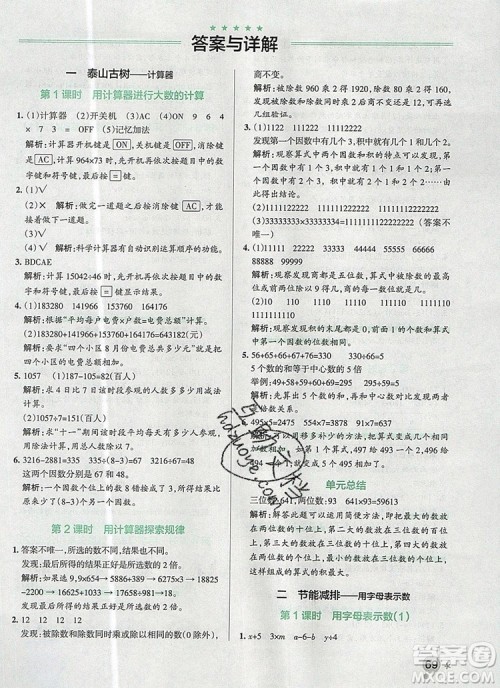 答案与详解
一 泰山古树——计算器
第1课时 用计算器进行大数的计算
1. (1)计算器 (2)开关机 (3)AC (4)ON 9 6 4
× 7 3 = OFF (5)记忆加法
解析:计算器开机键是 ON ,关机键是 OFF ,消除
键是 AC ,计算964×73时,先开机再依次按题目中的数
字键和符号键,最后按 = 键,再关机。
2. (1)√
解析:做完一道题之后按消除键 AC ,再做下一道题。
(2)√
(3)√
(4)√ 解析:科学计算器有自动识别运算顺序的功能。
3. BDCAE
解析:计算15042÷46时,开机后依次按题目中的数字键
和符号键,最后按 = 键显示结果。
4. (1)183280 141916 153760 164876
解析:根据“平均每户电费×户数=电费总额”计算。
(2)183280+141916+153760+164876=643832(元)
解析:四个小区8月份电费总额就是把四个小区的电费总
额加起来。
5. 1057
(1)185-100=85(百人)
解析:求4日比7日该时段参观的人数多多少用减法
计算。
(2)1057÷7=151(百人)
解析:求“十一”期间该时段平均每天多少人参观,用
总人数除以天数。
6. 3216-2881=335 335÷(8-3)=67 3216÷67=48
这两个因数分别是67和48。
解析:小粗心把一个因数个位上的数字8错看成了3,少看
(8-3)个另一个因数,所得结果也就比原来少335。
第2课时 用计算器探索规律
1. 答案不唯一,所选的数不同,结果也不同。
发现:最后所得的结果正好是所选数的2倍。
解析:如选9,9×654→5886→5886×55→323730→323730
-16800→306930→306930-22200→284730→284730
÷15820→18,18正好是9的2倍。
2. 12 12 12 12
发现:被除数和除数同时乘或除以相同的数(0除外),
商不变。
解析:被除数960乘2得1920,除数80乘2得160,
发现被除数和除数同时乘或除以相同的数,商不变,可再试
几组验证。
3. (1)11 1111 111111
发现第一个因数中有几个3,积中就有几个1和几个2。
解析:观察算式中两个因数和积的特点可以发现:当
第一个因数中有几个3时,积中就有几个1和几个2,由
此得出结论。
(2)1111122222 11111112222222
(3)33333×33334 3333333×33333334 (答案不
唯一)
4. (1)11111 22222 33333 44444 55555 66666
88888 99999
解析:观察发现得数都是五位数,算式中被除数的前两位
上的数字是几,结果就由几组成。
(2)110 1110 11110 111110 1111110
11111110
解析:观察发现积的前几位都是1,最后一位是0,算式中
第一个因数是几位数,积中就有几个1。
5. 56+65+66+67+76=330 66×5=330
5个数的和等于中心数的5倍
举例:49+58+59+60+69=295 59×5=295
6. 495×5=2475 945×2=1890 542×9=4878
解析:可以用逐步尝试的方法进行计算。
单元总结
三位数:641,两位数:93 641×93=59613
发现:要使两个因数的积最大,就应该把最大的两个数放
在两个数的最高位上,第三大的数放在三位数的十位上,
第四大的数放在两位数的个位上,最小的数放在三位数的
个位上。
二 节能减排——用字母表示数
第1课时 用字母表示数(1)
1. x+5 3×m a-6-b y÷4
69